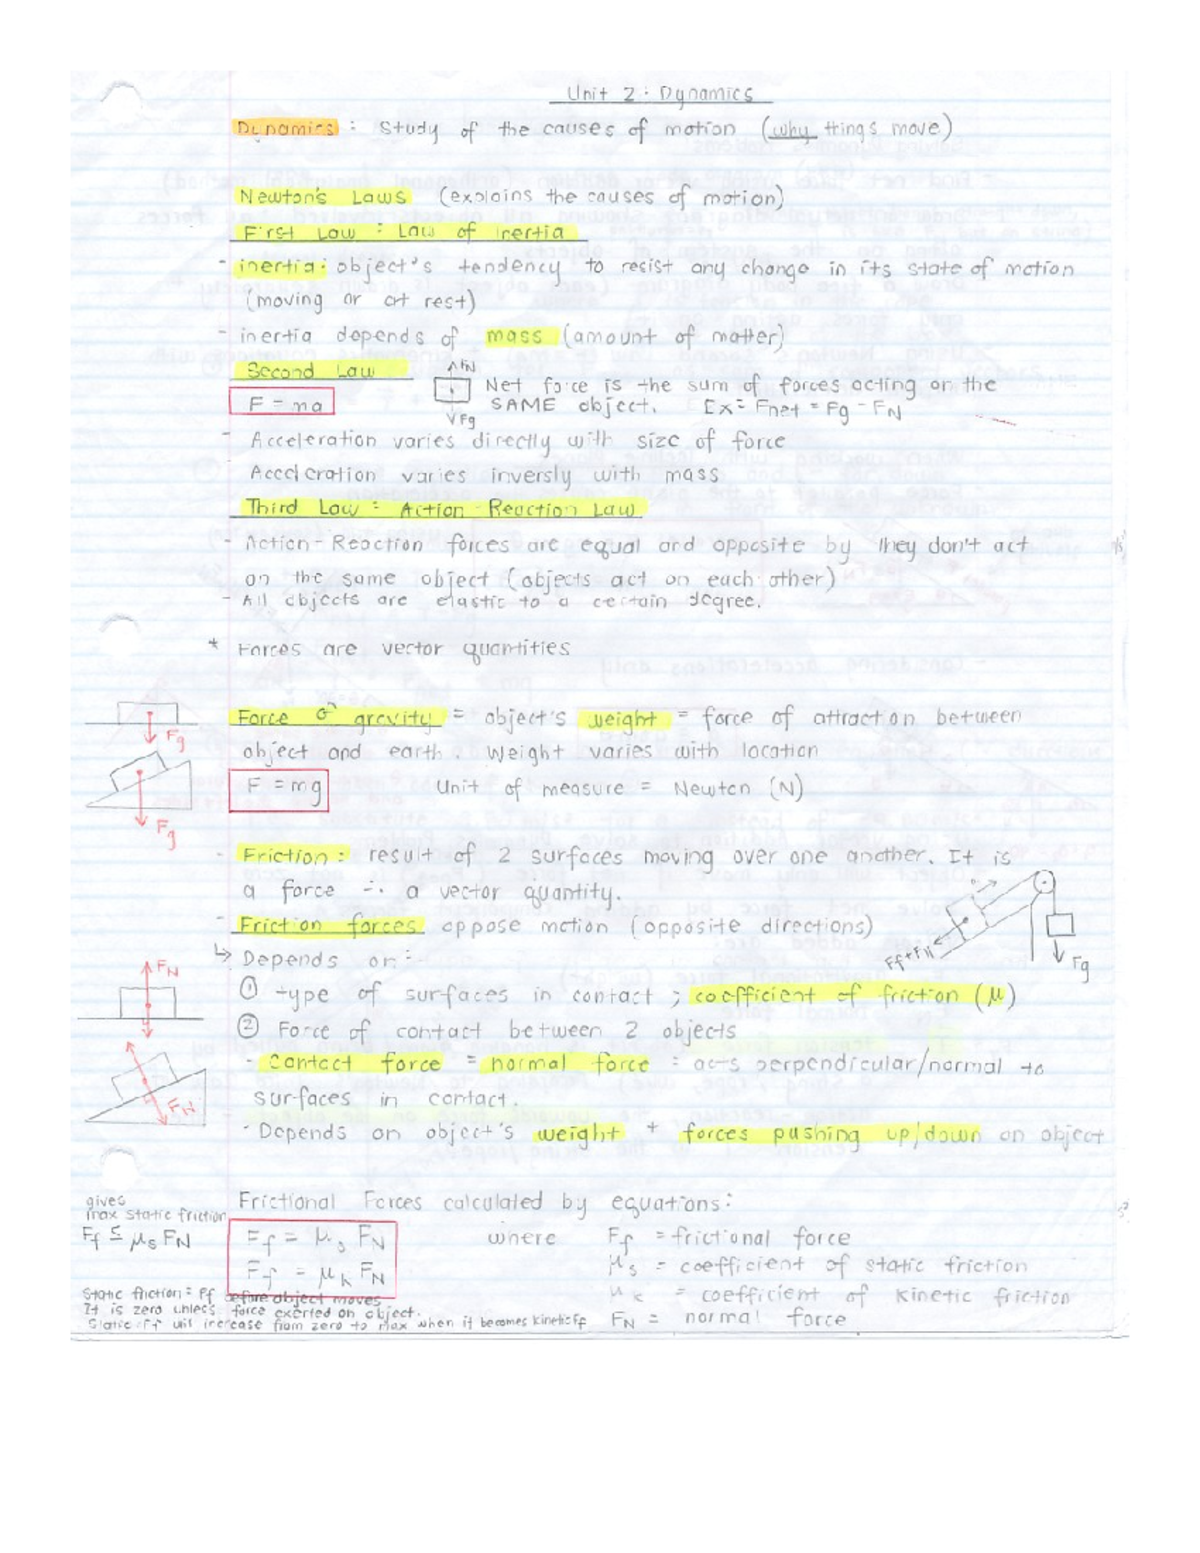 Unit 2: Dynamics
Dynamics: Study of the causes of motion (why things move)
Newton's Laws (explains the causes of motion)
First Law: Law of Inertia
- inertia: object's tendency to resist any change in its state of motion
(moving or at rest)
- inertia depends of mass (amount of matter)
Second Law
FN
Net force is the sum of forces acting on the
F = ma
SAME object. Ex: Fnet = Fg - FN
Fg
- Acceleration varies directly with size of force
Acceleration varies inversly with mass
Third Law: Action-Reaction Law
- Action-Reaction forces are equal and opposite by they don't act
on the same object (objects act on each other)
- All objects are elastic to a certain degree.
* Forces are vector quantities
Force of gravity = object's weight = force of attraction between
Fg
object and earth. Weight varies with location
F = mg Unit of measure = Newton (N)
Fg
- Friction: result of 2 surfaces moving over one another. It is
a force ∴ a vector quantity.
- Friction forces oppose motion (opposite directions)
Ff+FN
Fg
↳ Depends on:
FN
① type of surfaces in contact; coefficient of friction (μ)
② Force of contact between 2 objects
- Contact force = normal force = acts perpendicular/normal to
FN
surfaces in contact.
- Depends on object's weight + forces pushing up/down on object
Frictional Forces calculated by equations:
gives
max static friction
Ff ≤ μs FN
Ff = μs FN where Ff = frictional force
Ff = μk FN μs = coefficient of static friction
μk = coefficient of kinetic friction
FN = normal force
Static friction = Ff before object moves
It is zero unless force exerted on object.
Static Ff will increase from zero to max when it becomes kinetic Ff